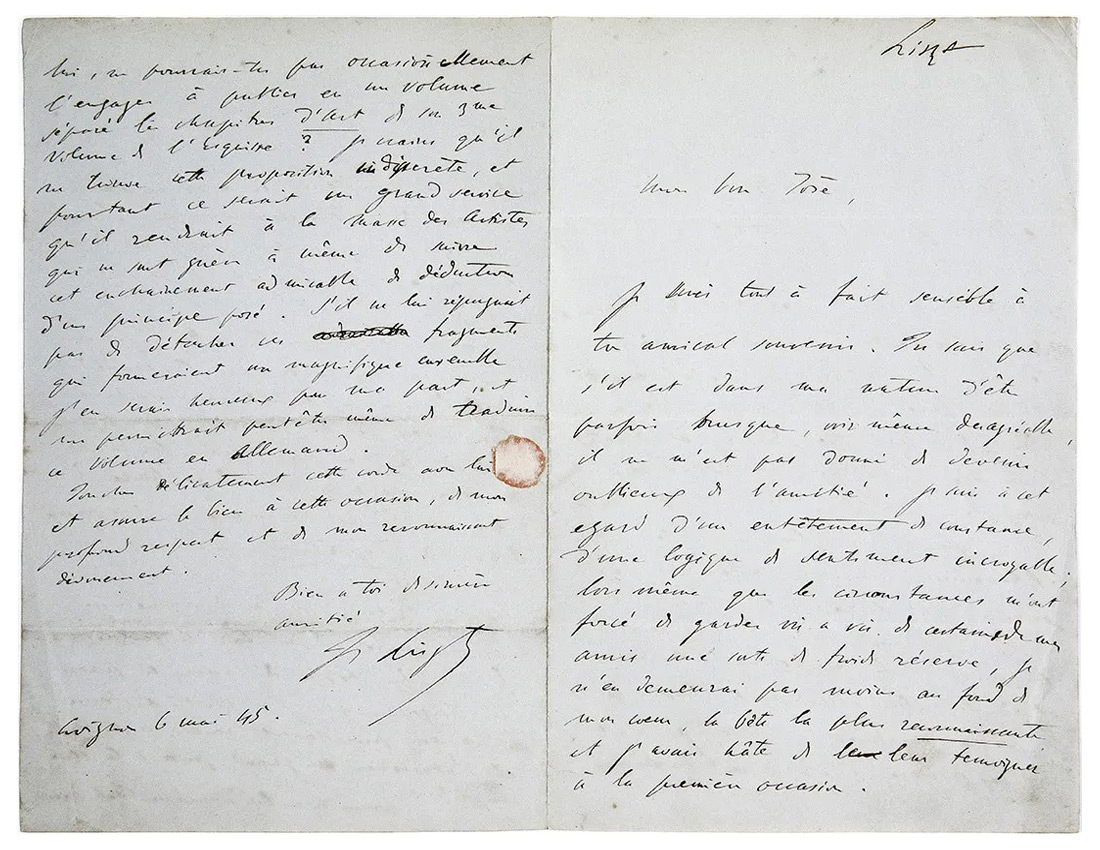 Liszt
Mon bon José,
Je suis tout à fait sensible à
ton amical souvenir. Tu sais que
s'il est dans ma nature d'être
parfois brusque, voir même desagréable,
il ne m'est pas donné de devenir
oublieux de l'amitié. Je suis à cet
egard d'un entêtement de constance,
d'une logique de sentiment incroyable;
lors même que les circonstances m'ont
forcé de garder vis a vis de certains de mes
amis une sorte de froide réserve, je
n'en demeurai pas moins au fond de
mon coeur, la bête la plus reconnaissante
et j'avais hâte de leur temoigner
à la première occasion.
lui, ne pourrais-tu pas occasionellement
l'engager à publier en un volume
séparé les chapitres d'art de son 3me
volume de l'Esquisse? Je crains qu'il
ne trouve cette proposition indiscrète, et
pourtant ce serait un grand service
qu'il rendrait à la masse des Artistes
qui ne sont guère à même de suivre
cet enchainement admirable de déduction
d'un principe posé. S'il ne lui répugnait
pas de détacher ces fragments
qui formeraient un magnifique ensemble
j'en serais heureux pour ma part, et
me permettrait peutêtre même de traduire
ce volume en allemand.
Touches délicatement cette corde avec lui
et assure le bien à cette occasion, de mon
profond respect et de mon reconnaissant
dévouement.
Bien a toi de sincère
amitié
F. Liszt
Avignon 6 mai 45.